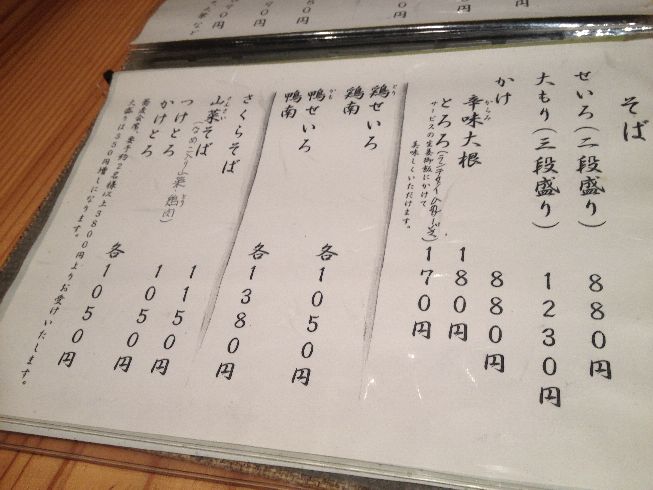 そば
せいろ(二段盛り) 880円
大もり(三段盛り) 1230円
かけ 880円
辛味大根 180円
からみ
とろろ 170円
サービスの生姜御飯にかけて
美味しくいただけます。
鶏せいろ
とり
鶏南 各1050円
鴨せいろ
かも
鴨南 各1380円
さくらそば 1150円
山菜そば 1050円
さんさい
(なめこ入り山菜、鶏肉)
とり
つけとろ
かけとろ 各1050円
蕎麦会席、要予約2名様以上3800円よりお受けいたします。
大盛りは350円増しになります。